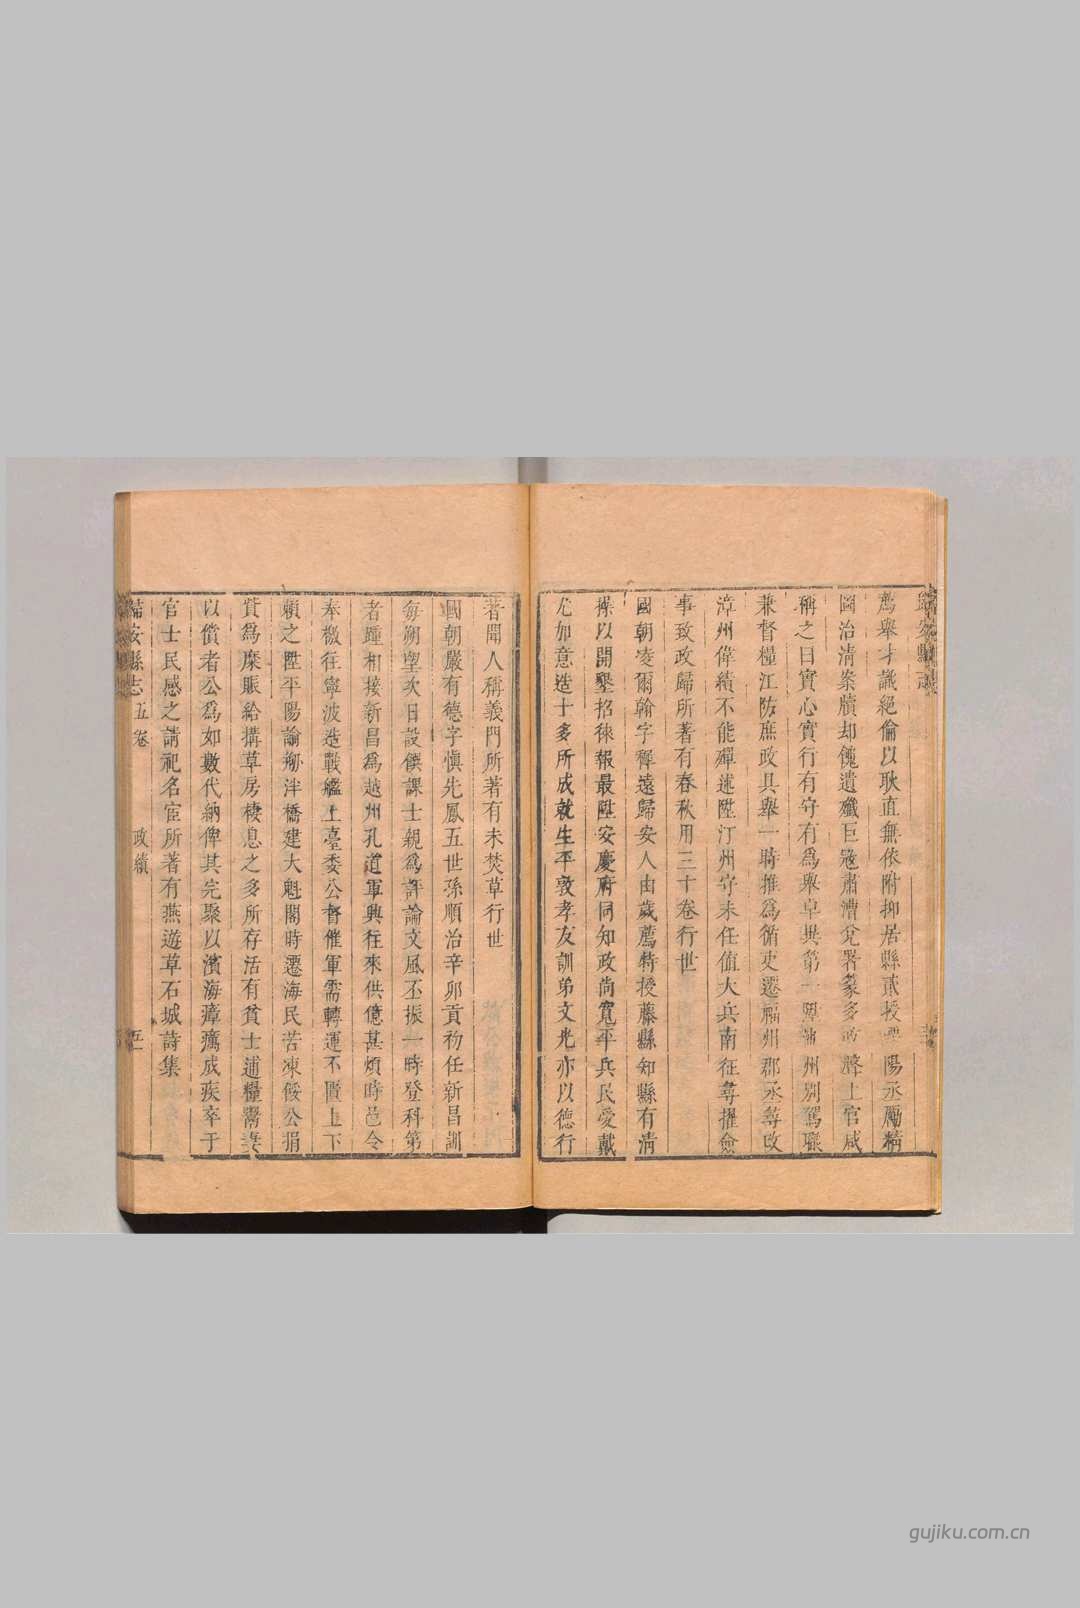 薦舉才識絕倫以耿直無依附抑居縣貳授 陽丞勵精
圖治清案牘却餽遺殲巨寇肅漕兌署篆多 將上官咸
稱之曰實心實行有守有爲舉卓異第一陞 州別駕
兼督糧江防庶政具舉一時推爲循吏遷福州郡丞尋改
漳州偉績不能殫述陞汀州守未任值大兵南征尋擢僉
事致政歸所著有春秋用三十卷行世
國朝凌爾翰字 遠歸安人由歲薦特授藤縣知縣有清
操以開墾招徠報最陞安慶府同知政尚寬平兵民愛戴
尤加意造士多所成就生平敦孝友訓弟文光亦以德行
著聞人稱義門所著有未焚草行世
國朝嚴有德字愼先鳳五世孫順治辛卯貢初任新昌訓
每朔望次日設饌課士親爲評論文風丕振一時登科第
者踵相接新昌爲越州孔道軍興往來供億甚煩時邑令
奉檄往寧波造戰艦上臺委公督催軍需轉運不匱上下
賴之陞平陽諭剏泮橋建大魁閣時遷海民苦凍餒公捐
貲爲糜賑給搆草房棲息之多所存活有貧士逋糧鬻妻
以償者公爲如數代納俾其完聚以濱海瘴癘成疾卒于
官士民感之請祀名宦所著有燕遊草石城詩集
歸安縣志 五卷 政績 五一
gujiku.com.cn